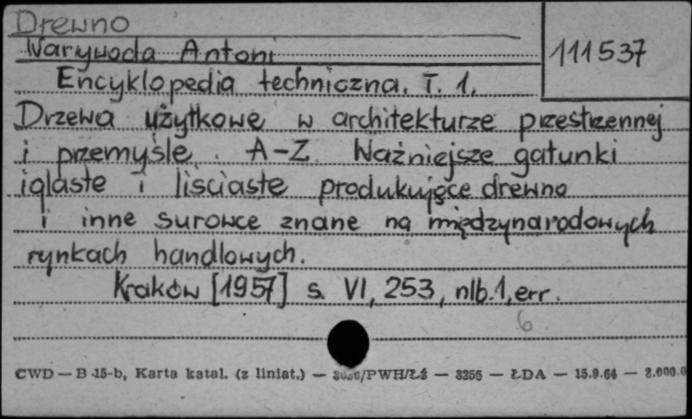 Drewno
Warywoda Antoni
111537
Encyklopedia techniczna. T. 1.
Drzewa użytkowe w architekturze przestrzennej
i przemyśle. A-Z. Ważniejsze gatunki
iglaste i liściaste produkujące drewno
i inne surowce znane na międzynarodowych
rynkach handlowych.
Kraków [1957] s. VI, 253, nlb.1, err.
6
CWD — B 15-b, Karta katal. (z liniat.) — /PWH/ŁŹ — 3256 — ŁDA — 15.9.64 — 2.000.0